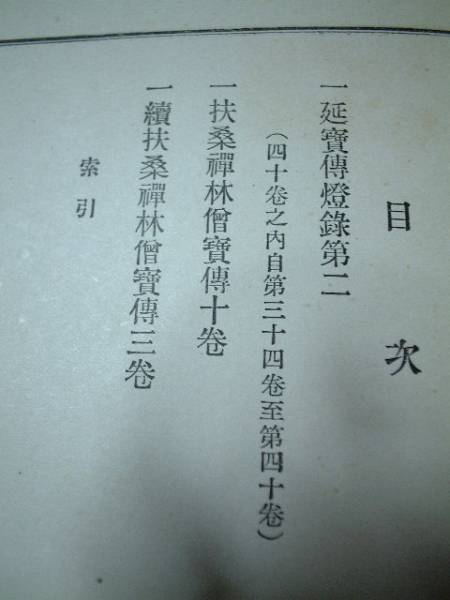 目次
一延寶傳燈錄第二
（四十卷之內自第三十四卷至第四十卷）
一扶桑禪林僧寶傳十卷
一續扶桑禪林僧寶傳三卷
索引